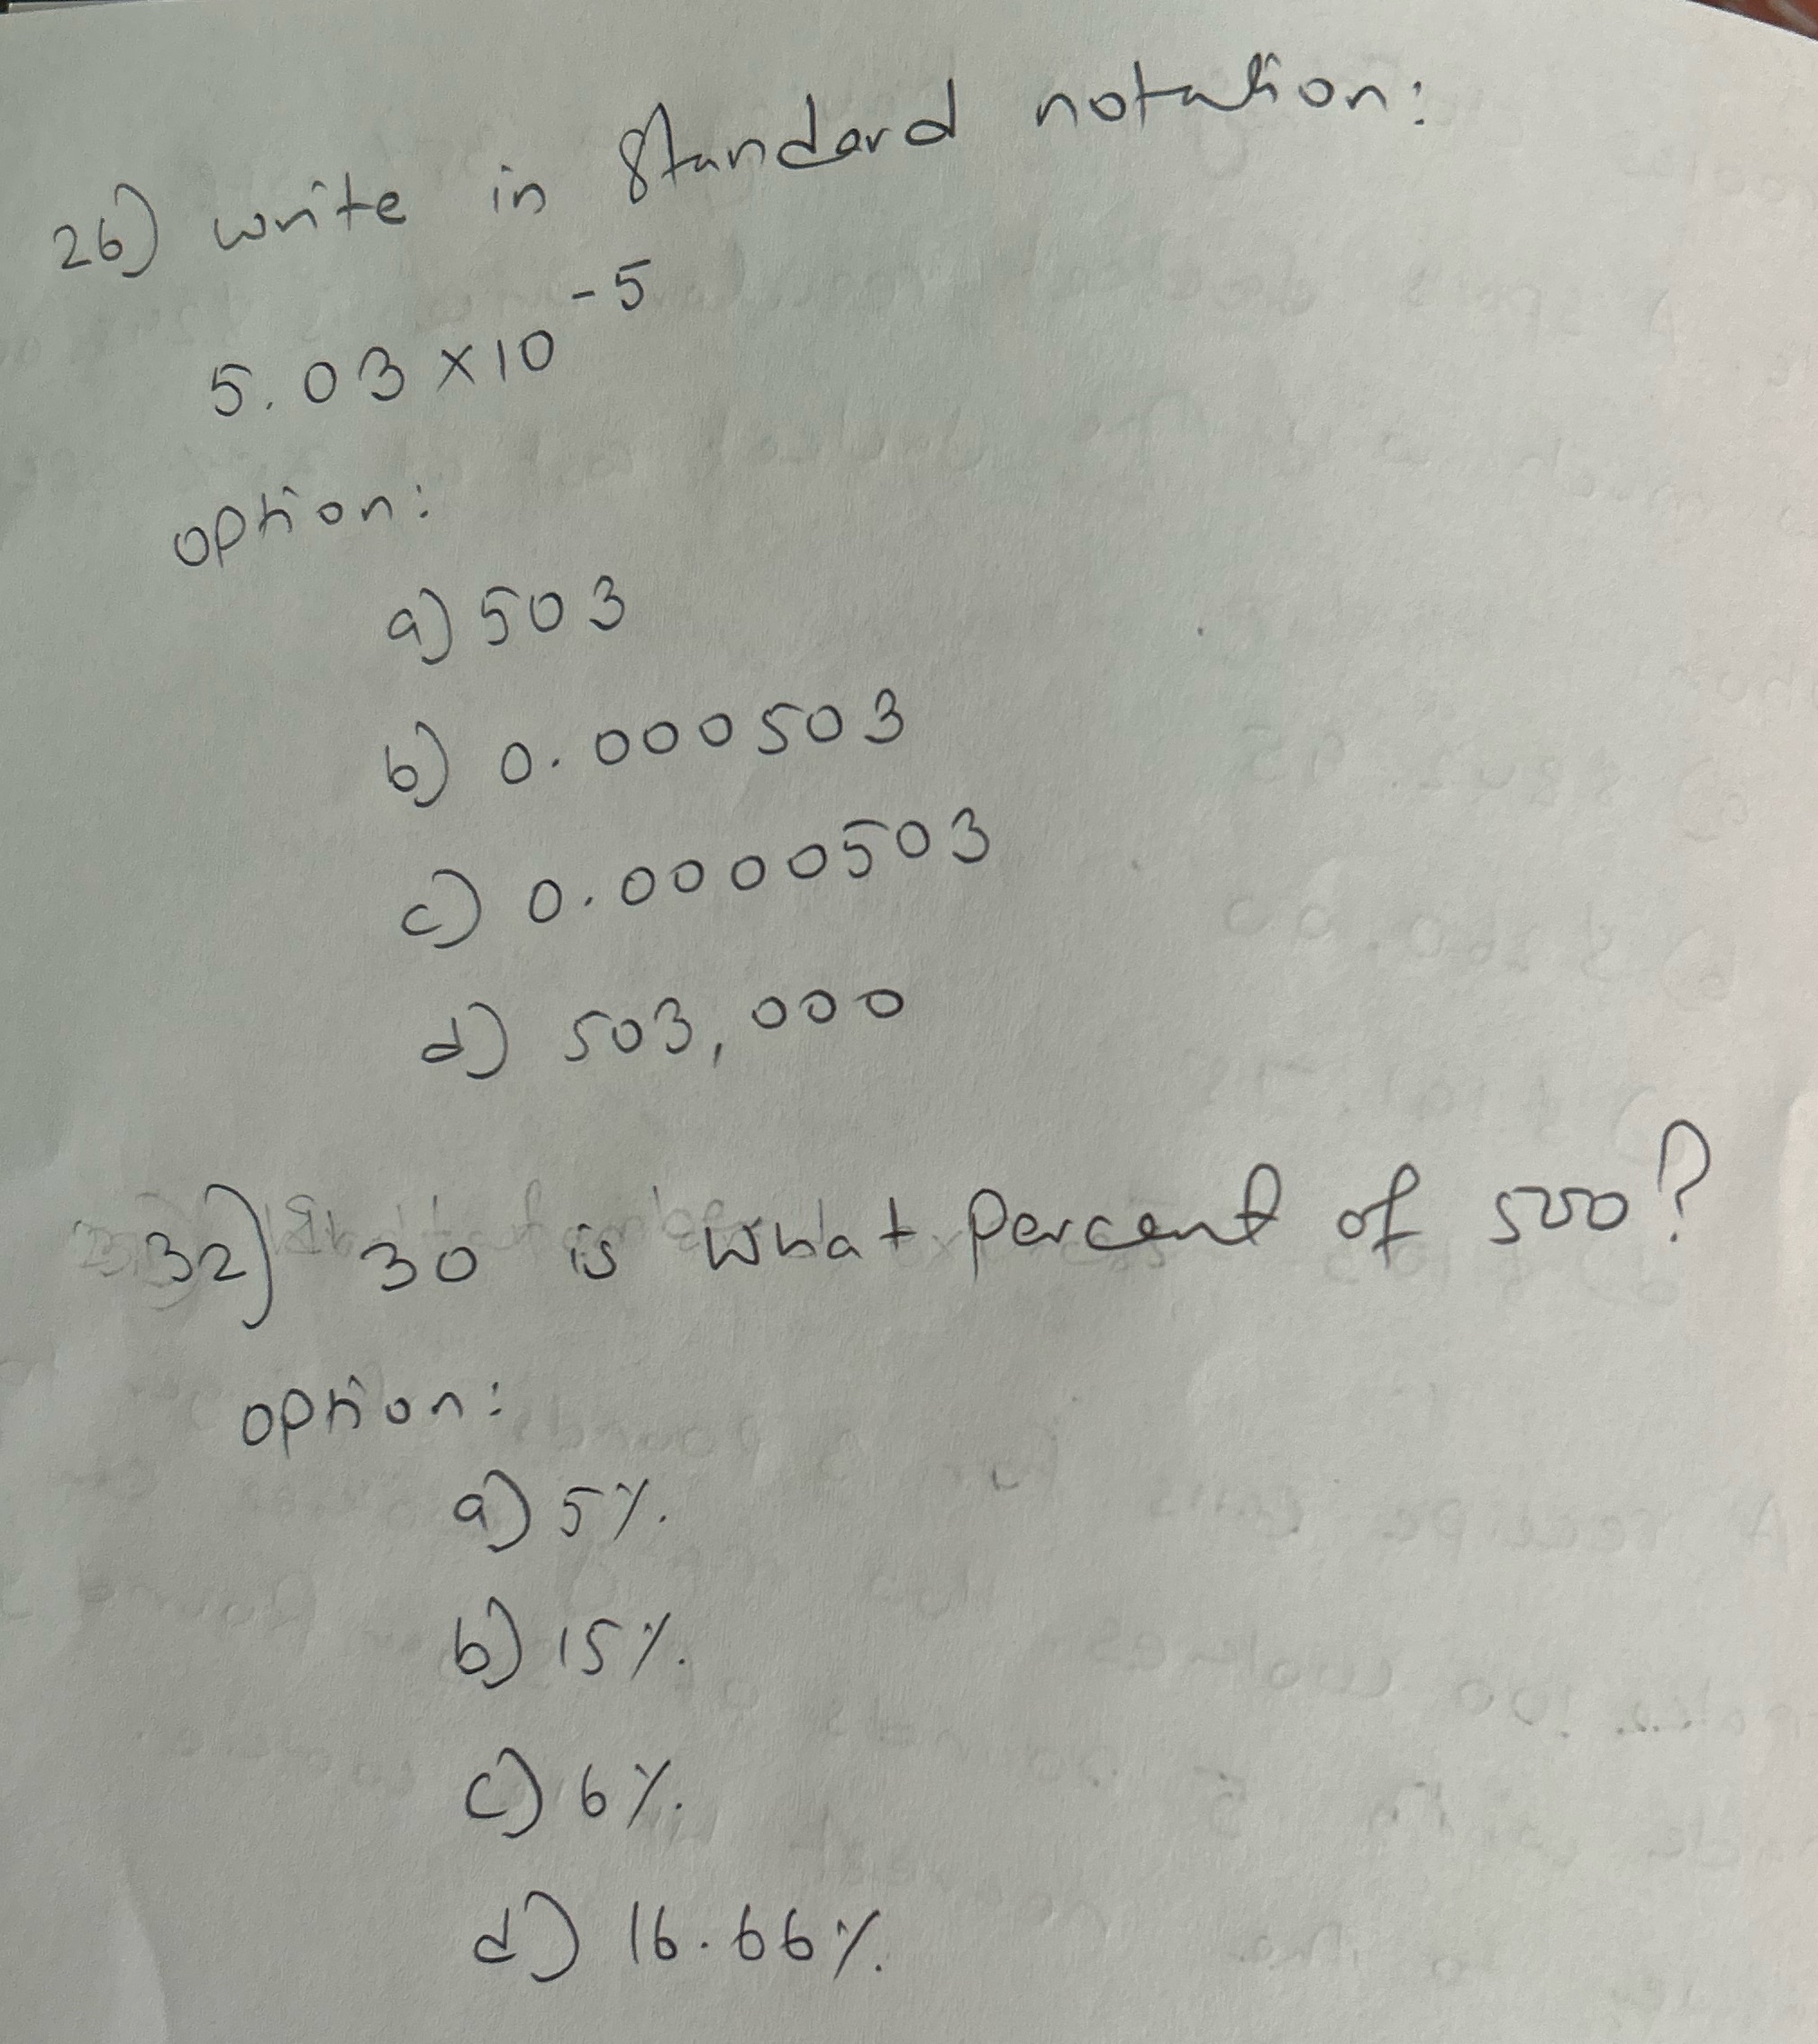 26) write in Standard notation:
5.03 x 10^-5
option:
a) 503
b) 0.000503
c) 0.0000503
d) 503,000
32) 30 is what percent of 500?
option:
a) 5%.
b) 15%.
c) 6%.
d) 16.66%.